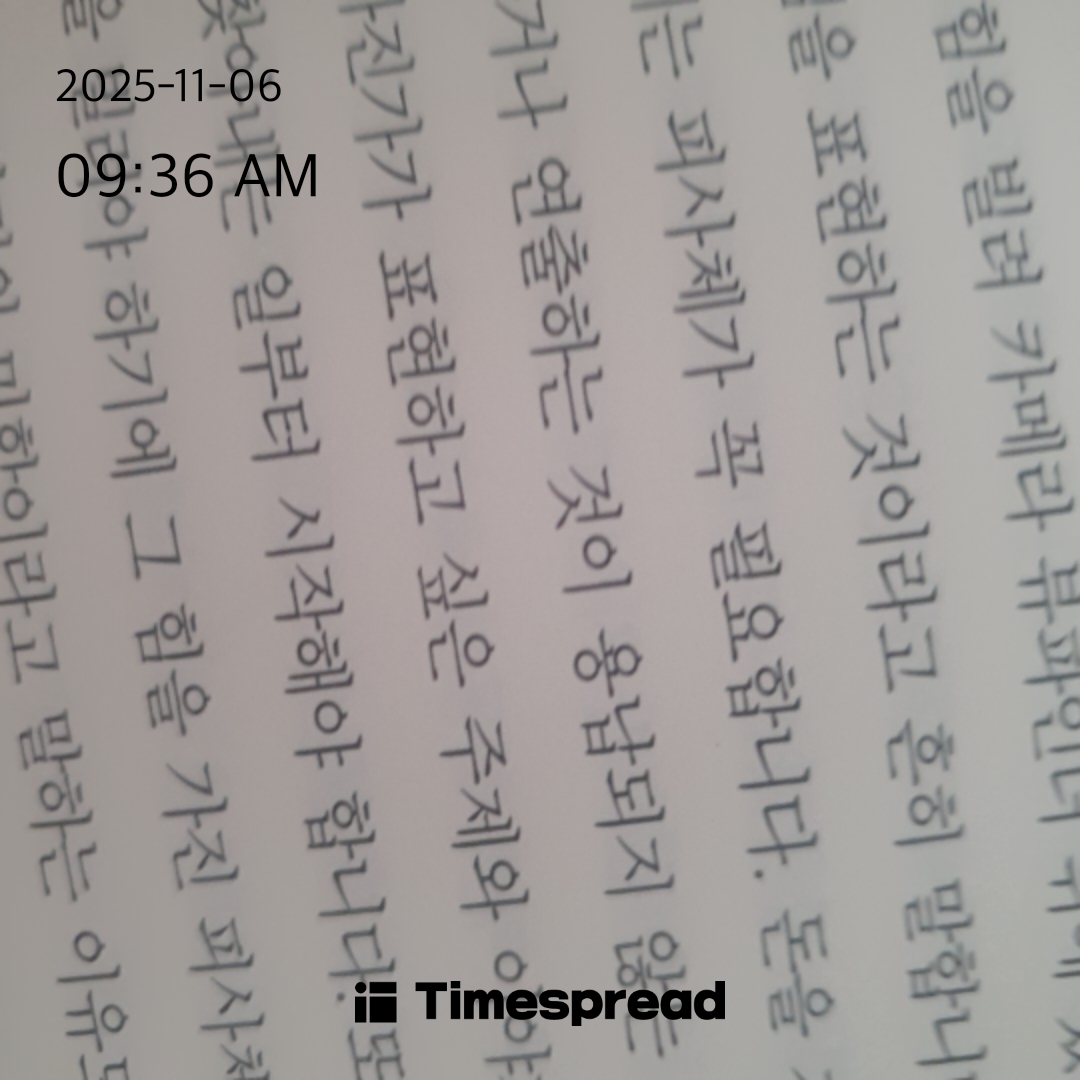 2025-11-06
09:36 AM
힘을 빌려 카메라 뷰파인더 뒤에
표현하는 것이라고 흔히 말합니
는 피사체가 꼭 필요합니다. 돈을
거나 연출하는 것이 용납되지 않는
사진가가 표현하고 싶은 주제와 이야
찾아내는 일부터 시작해야 합니다. 또
을 빌려야 하기에 그 힘을 가진 피사체
미학이라고 말하는 이유도
Timespread